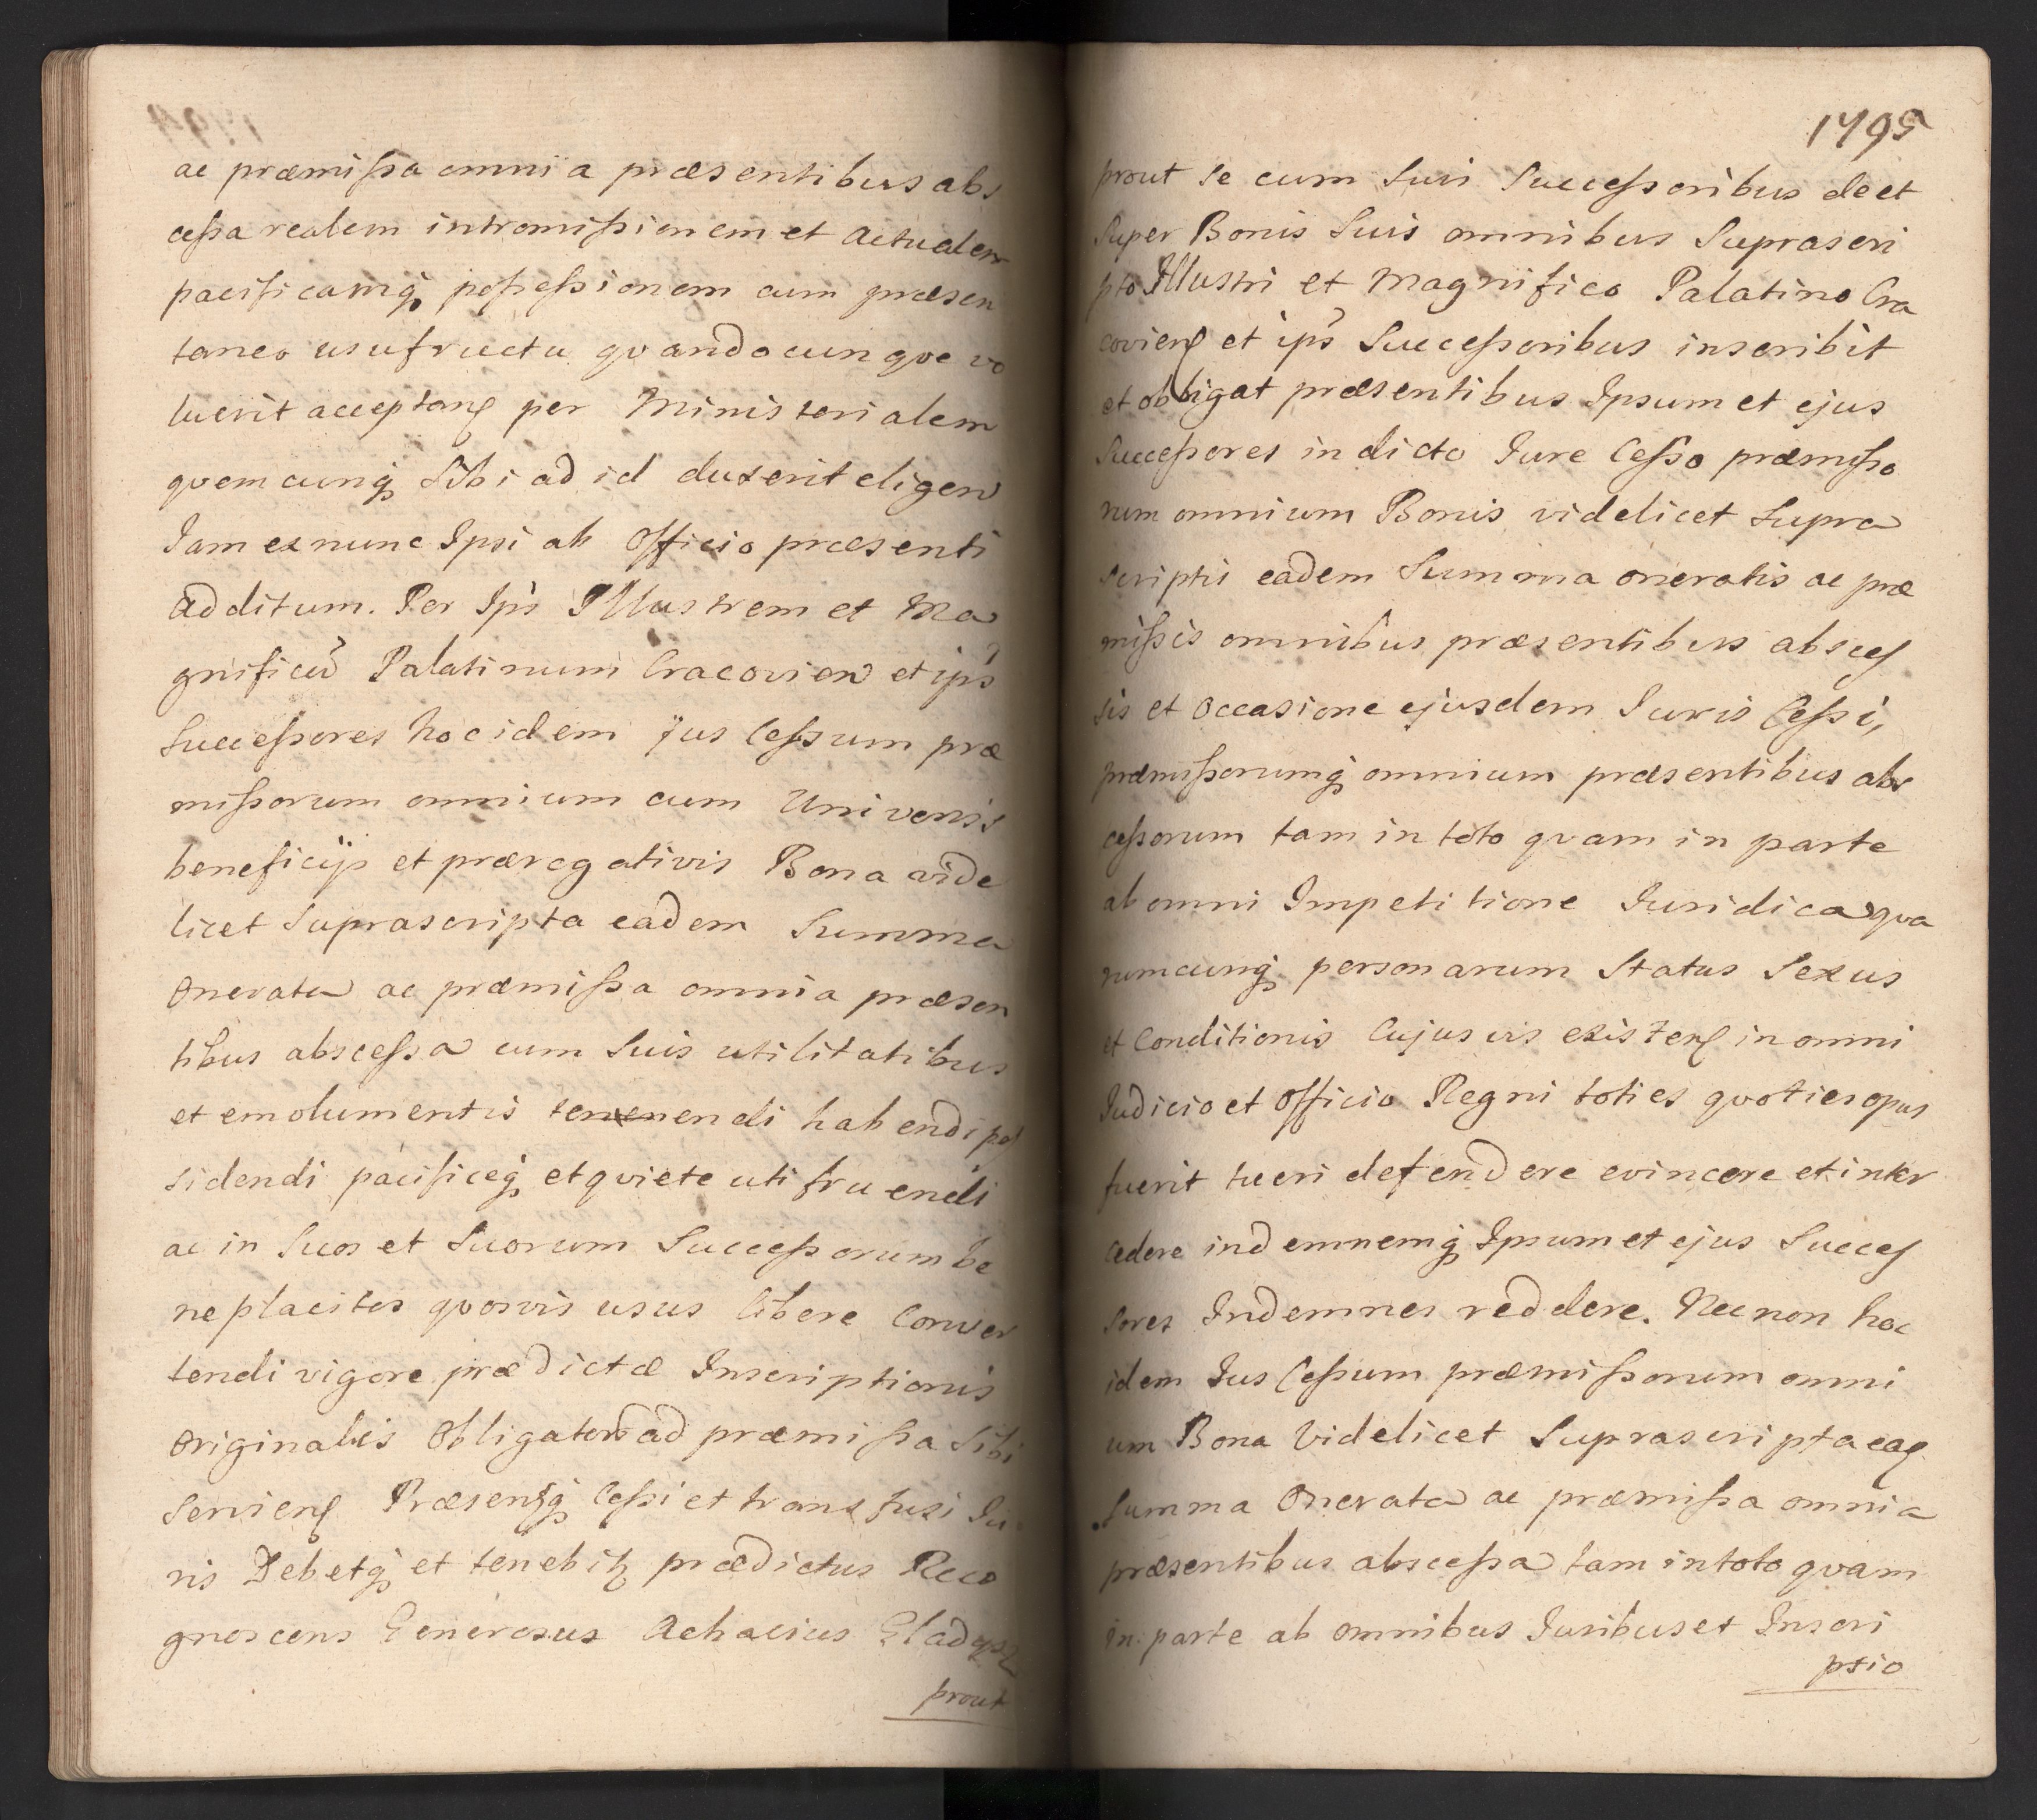 ac præmissa omnia præsentibus abs
cessa realem intromissionem et actualem
pacificamq possessionem cum præsen
taneo usufructu qvandocunqve vo
luerit acceptans per Ministerialem
qvemcunq Sibi ad id duxerit eligen
Jam ex nunc Ipsi ab Officio præsenti
additum. Per Ips Illustrem et Ma
gnificu Palatinum Cracovien et ips
Successores hoc idem jus Cessum præ
missorum omnium cum Universis
beneficijs et prærogativis Bona vide
licet Suprascripta eadem Summa
Onerata ac præmissa omnia præsen
tibus abscessa cum Suis utilitatibus
et emolumentis tenenendi habendi pos
sidendi pacificeq et qviete uti fruendi
ac in Suos et Suorum Successorum be
neplacitos qvosvis usus libere Conver
tendi vigore prædictæ Inscriptionis
Originalis Obligatoria ad præmissa Sibi
Serviens Præsensq Cessi et transfusi Ju
ris Debetq et tenebit prædictus Reco
gnoscens Generosus Achacius Gładysz
prout
1795
prout Se cum Suis Successoribus de et
Super Bonis Suis omnibus Suprascri
pto Illustri et Magnifico Palatino Cra
coviens et ips Successoribus inscribit
et obligat præsentibus Ipsum et ejus
Successores in dicto Jure Cesso præmisso
rum omnium Bonis videlicet Supra
scriptis eadem Summa oneratis ac præ
missis omnibus præsentibus absces
sis et occasione ejusdem Juris Cessi,
præmissorumq omnium præsentibus abs
cessorum tam in toto qvam in parte
ab omni Impetitione Juridica qva
rumcunq personarum Status Sexus
et Conditionis Cujusvis existens in omni
Judicio et Officio Regni toties qvoties opus
fuerit tueri defendere evincere et inter
cedere indemnemq Ipsum et ejus Succes
sores Indemnes reddere. Nec non hoc
idem Jus Cessum præmissorum omni
um Bona Videlicet Suprascripta ead
Summa Onerata ac præmissa omnia
præsentibus abscessa tam in toto qvam
in parte ab omnibus Juribus et Inscri
ptio